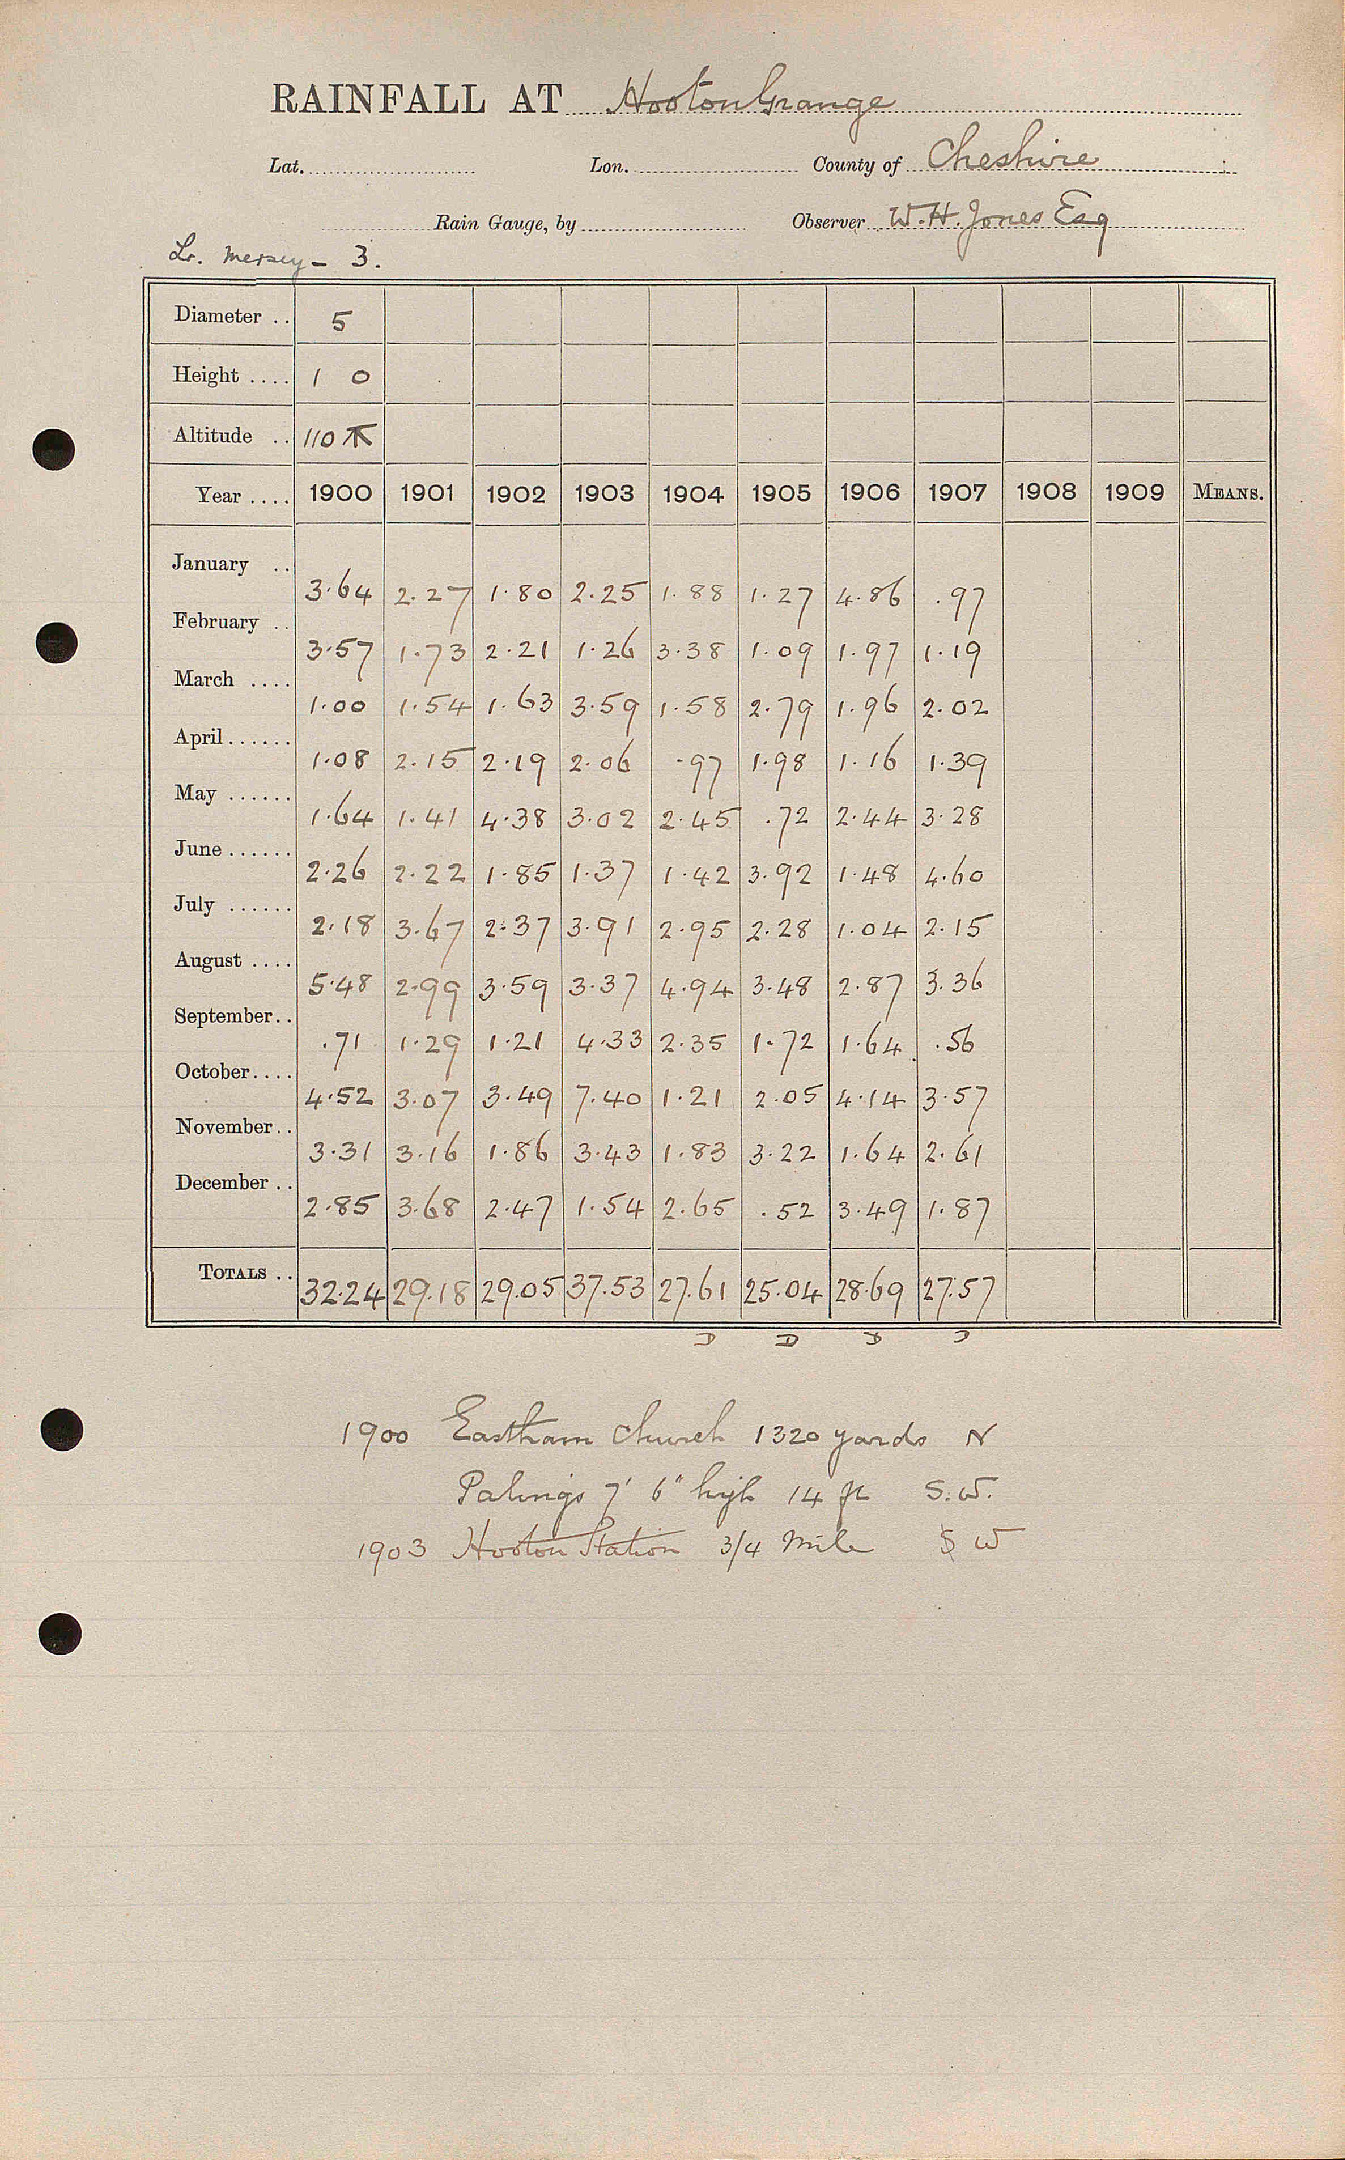 RAINFALL AT Hooton Grange
Lat. Lon. County of Cheshire
Rain Gauge, by Observer W. H. Jones Esq
Lr. Mersey - 3.
Diameter .. 5
Height .... 1 0
Altitude .. 110
Year .... 1900 1901 1902 1903 1904 1905 1906 1907 1908 1909 MEANS.
January .. 3.64 2.27 1.80 2.25 1.88 1.27 4.86 .97
February .. 3.57 1.73 2.21 1.26 3.38 1.09 1.97 1.19
March .... 1.00 1.54 1.63 3.59 1.58 2.79 1.96 2.02
April...... 1.08 2.15 2.19 2.06 .97 1.98 1.16 1.39
May ...... 1.64 1.41 4.38 3.02 2.45 .72 2.44 3.28
June...... 2.26 2.22 1.85 1.37 1.42 3.92 1.48 4.60
July ...... 2.18 3.67 2.37 3.91 2.95 2.28 1.04 2.15
August .... 5.48 2.99 3.59 3.37 4.94 3.48 2.87 3.36
September.. .71 1.29 1.21 4.33 2.35 1.72 1.64 .56
October.... 4.52 3.07 3.49 7.40 1.21 2.05 4.14 3.57
November.. 3.31 3.16 1.86 3.43 1.83 3.22 1.64 2.61
December .. 2.85 3.68 2.47 1.54 2.65 .52 3.49 1.87
TOTALS .. 32.24 29.18 29.05 37.53 27.61 25.04 28.69 27.57
D D D D
1900 Eastham Church 1320 yards N
Palings 7' 6" high 14 ft S.W.
1903 Hooton Station 3/4 Mile S W